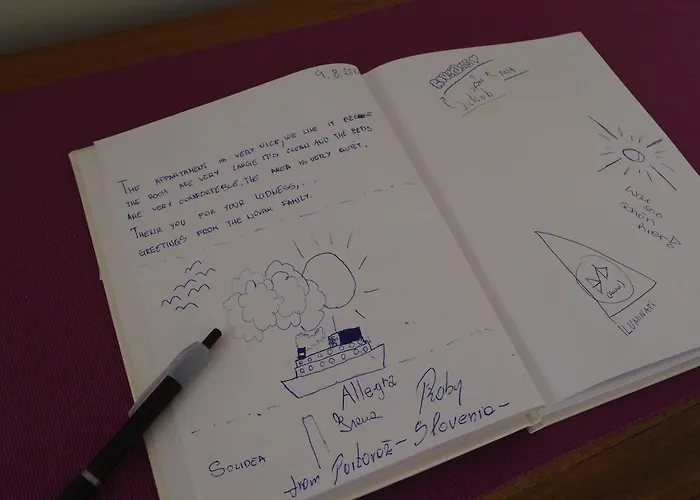 9.8.
THE APPARTAMENT IS VERY NICE, WE LIKE IT BECAUSE
THE ROOM ARE VERY LARGE IT'S CLEAN AND THE BEDS
ARE VERY CONFORTEBLE. THE AREA IS VERY QUIET.
THENK YOU FOR YOUR KIDNESS,
GREETINGS FROM THE NOVAK FAMILY.
Allegra
Roby
SOLIDEA
from Portorož - Slovenia -
Jakob
War
soo
schön
hier!
ILUMINATI